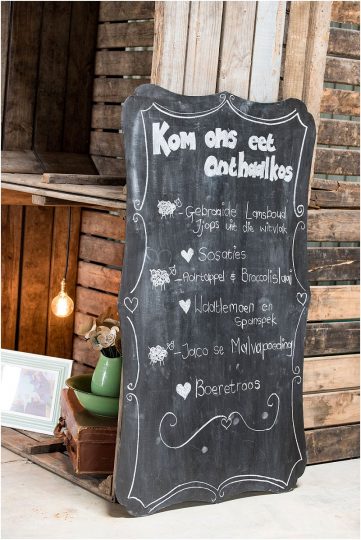 Kom ons eet
onthaalkos
- Gebraaide Lamsboud
Tjops uit die witvlak
Sosaties
- Aartappel & Broccolislaai
Waatlemoen en
spanspek
- Jaco se Malvapoeding
Boeretroos